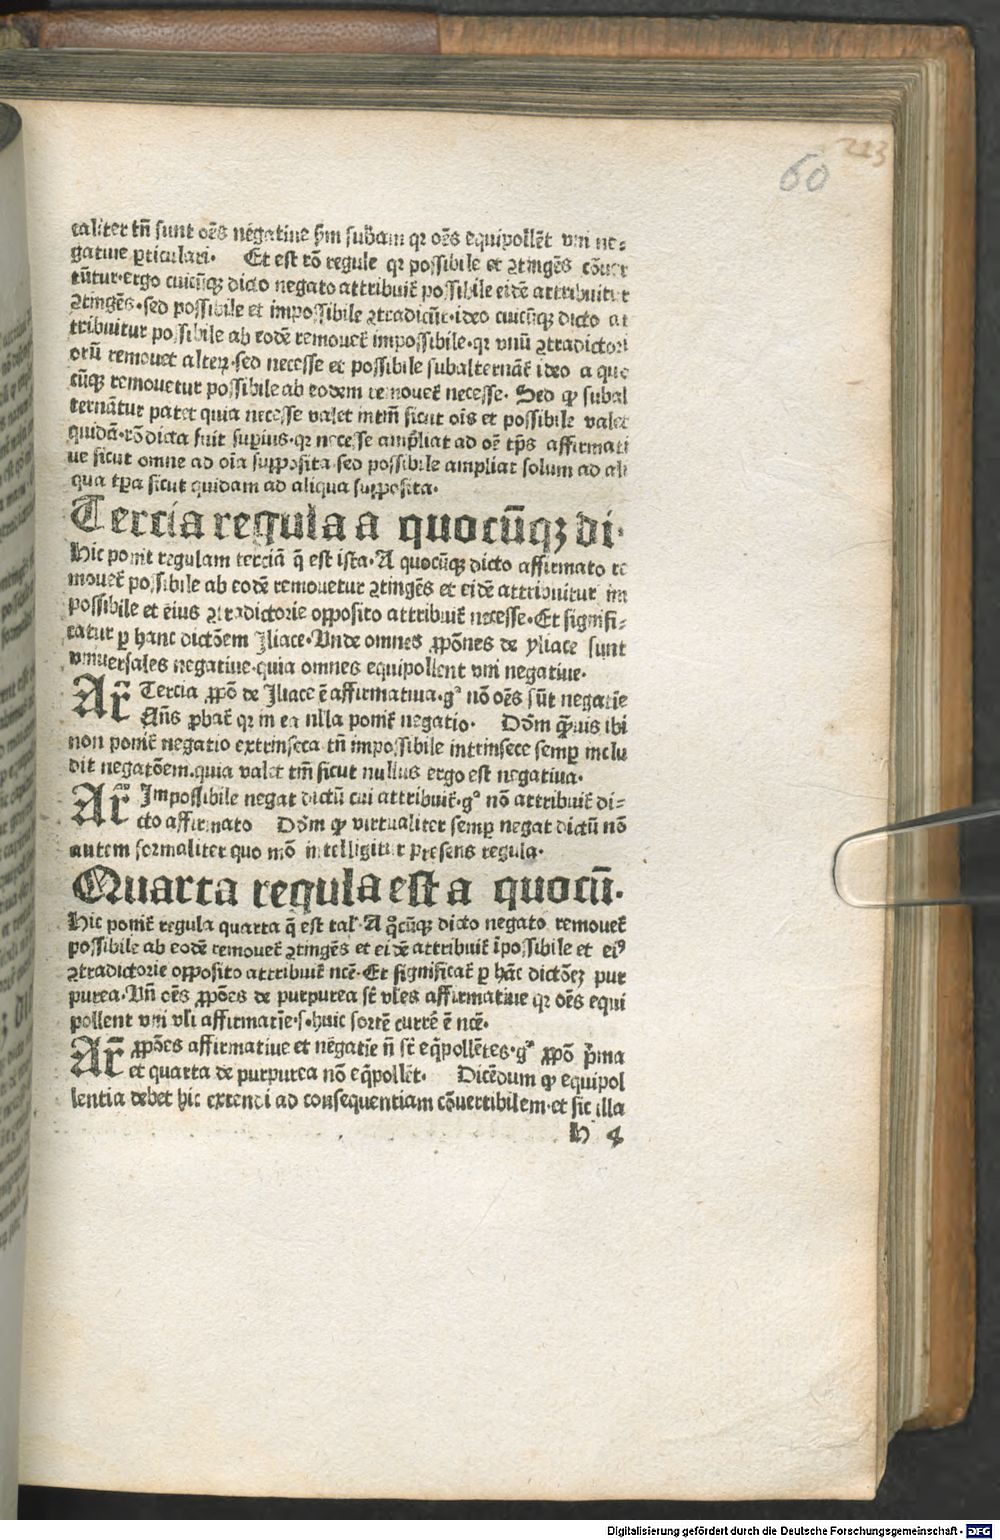 223
60
taliter tñ sunt oẽs negatiue ẜm subãm qꝛ oẽs equipollẽt vni ne⸗
gatiue ꝑticulari. Et est rõ regule qꝛ possibile et ꝯtingẽs cõuer
tũtur·ergo cuicũqꝫ dicto negato attribuiť possibile eidẽ attribuitur
ꝯtingẽs·sed possibile et impossibile ꝯtradicũt·ideo cuicũqꝫ dicto at
tribuitur possibile ab eodẽ remoueť impossibile·qꝛ vnũ ꝯtradictori
orũ remouet alterꝝ·sed necesse et possibile subalternãť ideo a quo
cũqꝫ remouetur possibile ab eodem remoueť necesse. Sed ꝙ subal
ternãtur patet quia necesse valet intm̃ sicut oĩs et possibile valet
quidã·rõ dicta fuit supius·qꝛ necesse ampliat ad oẽ tp̃s affirmati
ue sicut omne ad oĩa supposita·sed possibile ampliat solum ad ali
qua tp̃a sicut quidam ad aliqua supposita.
Tercia regula a quocũqꝫ di·
Hic ponit regulam terciã q̃ est ista·A quocũqꝫ dicto affirmato re
moueť possibile ab eodẽ remouetur ꝯtingẽs et eidẽ attribuitur im
possibile et eius ꝯtradictorie opposito attribuiť necesse·Et signifi⸗
catur ꝑ hanc dictõem Iliace·Vnde omnes ꝓpõnes de yliace sunt
vniuersales negatiue·quia omnes equipollent vni negatiue.
Arͬ Tercia ꝓpõ de Iliace ẽ affirmatiua·gͦ nõ oẽs sũt negatiẽ
Añs ꝓbať qꝛ in ea nlla poniť negatio. Dõm q̃uis ibi
non poniť negatio extrinseca tñ impossibile intrinsece semꝑ inclu
dit negatõem.quia valet tm̃ sicut nullus ergo est negatiua.
Arͬ Impossibile negat dictũ cui attribuiť·gͦ nõ attribuiť di⸗
cto affirmato Dõm ꝙ virtualiter semꝑ negat dictũ nõ
autem formaliter quo mõ intelligitur presens regula.
Quarta regula est a quocũ.
Hic poniť regula quarta q̃ est tal̃·A q̊cũqꝫ dicto negato remoueť
possibile ab eodẽ remoueť ꝯtingẽs et eidẽ attribuiť ĩpossibile et eiꝰ
ꝯtradictorie opposito attribuiť ncẽ·Et significať ꝑ hãc dictõeꝫ pur
purea·Vñ oẽs ꝓpõẽs de purpurea sť vl̃es affirmatiue qꝛ oẽs equi
pollent vni vl̃i affirmatiẽ·s·huic sortẽ currẽ ẽ ncẽ.
Arͬ ꝓpõẽs affirmatiue et nẽgatiẽ ñ sť eq̃pollẽtes·gͦ ꝓpõ p̃ma
et quarta de purpurea nõ eq̃pollẽt. Dicẽdum ꝙ equipol
lentia debet hic extendi ad consequentiam cõuertibilem·et sic illa
h 4
Digitalisierung gefördert durch die Deutsche Forschungsgemeinschaft - DFG